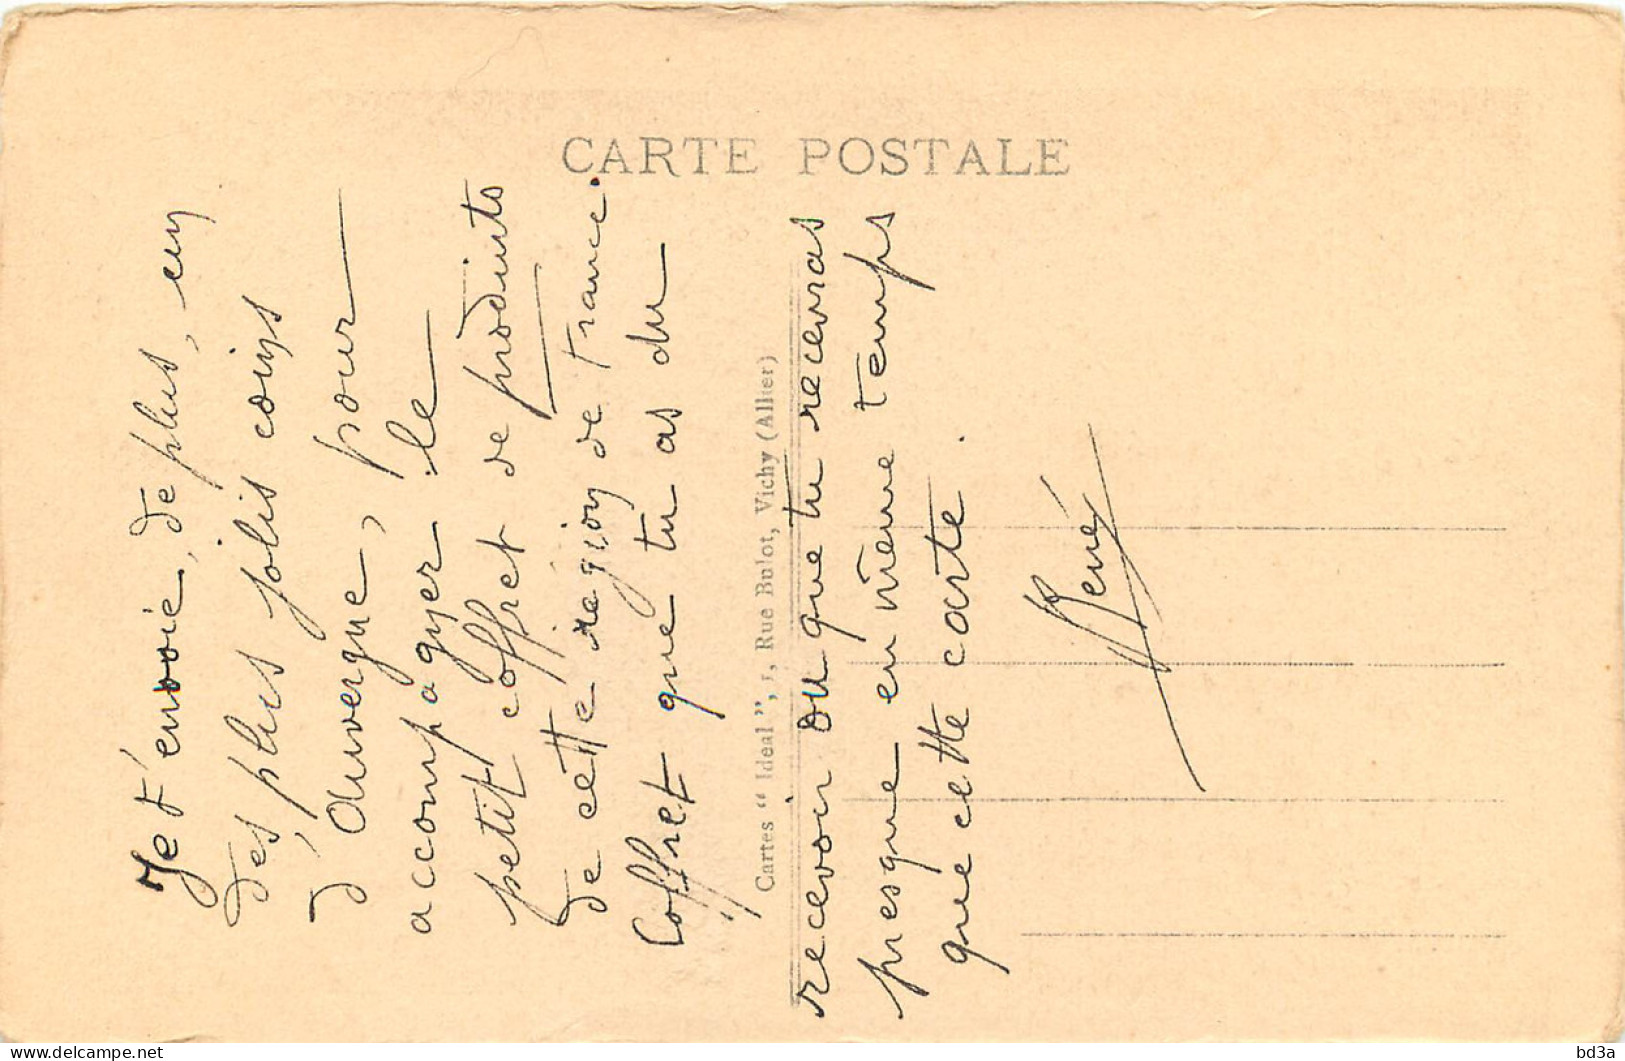 CARTE POSTALE
Je t'envoie, de plus, un
des plus jolis coins
d'Auvergne, pour
accompagner le
petit coffret de produits
de cette région de France.
Coffret que tu as du
Cartes "Ideal", 1, Rue Bulot, Vichy (Allier)
recevoir ou que tu recevras
presque en même temps
que cette carte.
René
delcampe.net
bd3a